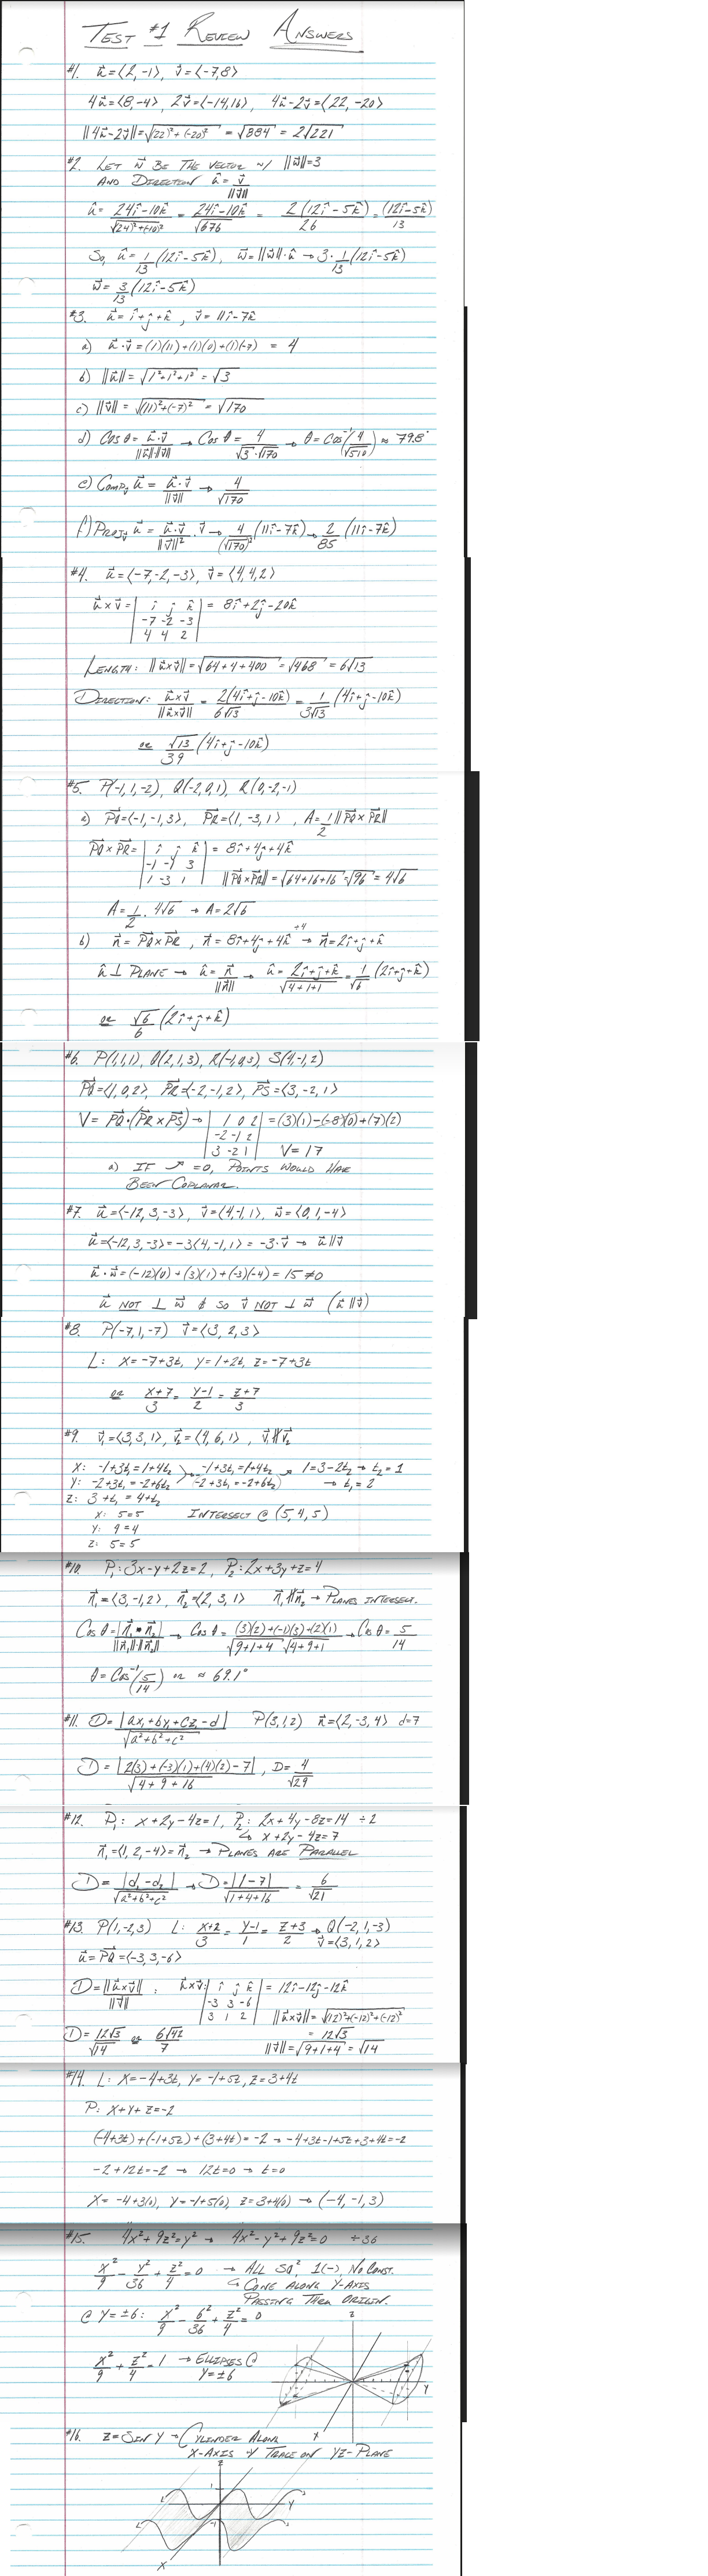 TEST #1 REVIEW ANSWERS
#1. u⃗=⟨2,-1⟩, v⃗=⟨-7,8⟩
4u⃗=⟨8,-4⟩, 2v⃗=⟨-14,16⟩, 4u⃗-2v⃗=⟨22,-20⟩
||4u⃗-2v⃗||=√(22)²+(-20)² = √884 = 2√221
#2. LET w⃗ BE THE VECTOR w/ ||w⃗||=3
AND DIRECTION û= v⃗/||v⃗||
û= (24î-10k̂)/√(24)²+(-10)² = (24î-10k̂)/√676 = 2(12î-5k̂)/26 = (12î-5k̂)/13
So, û=1/13(12î-5k̂), w⃗=||w⃗||·û → 3·1/13(12î-5k̂)
w⃗=3/13(12î-5k̂)
#3. u⃗=î+ĵ+k̂, v⃗=11î-7k̂
a) u⃗·v⃗=(1)(11)+(1)(0)+(1)(-7) = 4
b) ||u⃗||=√1²+1²+1² = √3
c) ||v⃗||=√(11)²+(-7)² = √170
d) Cos θ= u⃗·v⃗/||u⃗||·||v⃗|| → Cos θ= 4/√3·√170 → θ=Cos⁻¹(4/√510) ≈ 79.8°
e) Comp_v u⃗ = u⃗·v⃗/||v⃗|| → 4/√170
f) PROJ_v u⃗ = u⃗·v⃗/||v⃗||² · v⃗ → 4/(√170)² (11î-7k̂) → 2/85 (11î-7k̂)
#4. u⃗=⟨-7,-2,-3⟩, v⃗=⟨4,4,2⟩
u⃗×v⃗=| î ĵ k̂ | = 8î+2ĵ-20k̂
-7 -2 -3
4 4 2
LENGTH: ||u⃗×v⃗||=√64+4+400 = √468 = 6√13
DIRECTION: u⃗×v⃗/||u⃗×v⃗|| = 2(4î+ĵ-10k̂)/6√13 = 1/3√13 (4î+ĵ-10k̂)
or √13/39 (4î+ĵ-10k̂)
#5. P(-1,1,-2), Q(-2,0,1), R(0,-2,-1)
a) PQ=⟨-1,-1,3⟩, PR=⟨1,-3,1⟩, A=1/2||PQ×PR||
PQ×PR=| î ĵ k̂ | = 8î+4ĵ+4k̂
-1 -1 3
1 -3 1 ||PQ×PR||=√64+16+16 = √96 = 4√6
A=1/2·4√6 → A=2√6
b) n⃗=PQ×PR, n⃗=8î+4ĵ+4k̂ ÷4 → n⃗=2î+ĵ+k̂
û ⊥ PLANE → û= n⃗/||n⃗|| → û= (2î+ĵ+k̂)/√4+1+1 = 1/√6 (2î+ĵ+k̂)
or √6/6 (2î+ĵ+k̂)
#6. P(1,1,1), Q(2,1,3), R(-1,0,3), S(4,-1,2)
PQ=⟨1,0,2⟩ PR=⟨-2,-1,2⟩, PS=⟨3,-2,1⟩
V= PQ·(PR×PS) → | 1 0 2 | =(3)(1)-(-8)(0)+(7)(2)
-2 -1 2
3 -2 1 V=17
a) IF ↗ =0, POINTS WOULD HAVE
BEEN COPLANAR.
#7. u⃗=⟨-12,3,-3⟩, v⃗=⟨4,-1,1⟩, w⃗=⟨0,1,-4⟩
u⃗=⟨-12,3,-3⟩=-3⟨4,-1,1⟩ = -3·v⃗ → u⃗∥v⃗
u⃗·w⃗=(-12)(0)+(3)(1)+(-3)(-4)=15≠0
u⃗ NOT ⊥ w⃗ & SO v⃗ NOT ⊥ w⃗ (u⃗∥v⃗)
#8. P(-7,1,-7) v⃗=⟨3,2,3⟩
L: X=-7+3t, Y=1+2t, Z=-7+3t
or X+7/3 = Y-1/2 = Z+7/3
#9. v⃗₁=⟨3,3,1⟩, v⃗₂=⟨4,6,1⟩, v⃗₁∦v⃗₂
X: -1+3t₁=1+4t₂ > -1+3t₁=1+4t₂ → 1=3-2t₂ → t₂=1
Y: -2+3t₁=-2+6t₂ -(-2+3t₁=-2+6t₂) → t₁=2
Z: 3+t₁=4+t₂
X: 5=5 INTERSECT @ (5,4,5)
Y: 4=4
Z: 5=5
#10. P₁: 3x-y+2z=2, P₂: 2x+3y+z=4
n⃗₁=⟨3,-1,2⟩, n⃗₂=⟨2,3,1⟩ n⃗₁∦n⃗₂ → PLANES INTERSECT.
Cos θ= |n⃗₁·n⃗₂|/||n⃗₁||·||n⃗₂|| → Cos θ= (3)(2)+(-1)(3)+(2)(1)/√9+1+4 √4+9+1 → Cos θ= 5/14
θ=Cos⁻¹(5/14) or ≈ 69.1°
#11. D= |ax₁+by₁+cz₁-d|/√a²+b²+c² P(3,1,2) n⃗=⟨2,-3,4⟩ d=7
D= |2(3)+(-3)(1)+(4)(2)-7|/√4+9+16, D= 4/√29
#12. P₁: x+2y-4z=1, P₂: 2x+4y-8z=14 ÷2
↳ x+2y-4z=7
n⃗₁=⟨1,2,-4⟩=n⃗₂ → PLANES ARE PARALLEL
D= |d₁-d₂|/√a²+b²+c² → D= |1-7|/√1+4+16 = 6/√21
#13. P(1,-2,3) L: X+2/3 = Y-1/1 = Z+3/2 → Q(-2,1,-3)
v⃗=⟨3,1,2⟩
u⃗=PQ=⟨-3,3,-6⟩
D= ||u⃗×v⃗||/||v⃗||, u⃗×v⃗=| î ĵ k̂ | = 12î-12ĵ-12k̂
-3 3 -6
3 1 2 ||u⃗×v⃗||=√(12)²+(-12)²+(-12)²
= 12√3
D= 12√3/√14 or 6√42/7 ||v⃗||=√9+1+4 = √14
#14. L: X=-4+3t, Y=-1+5t, Z=3+4t
P: X+Y+Z=-2
(-4+3t)+(-1+5t)+(3+4t)=-2 → -4+3t-1+5t+3+4t=-2
-2+12t=-2 → 12t=0 → t=0
X=-4+3(0), Y=-1+5(0), Z=3+4(0) → (-4,-1,3)
#15. 4x²+9z²=y² → 4x²-y²+9z²=0 ÷36
x²/9 - y²/36 + z²/4 = 0 → ALL SQ², 1(-), NO CONST.
↳ CONE ALONG Y-AXIS
PASSING THRU ORIGIN.
@ Y=±6: x²/9 - 6²/36 + z²/4 = 0
x²/9 + z²/4 = 1 → ELLIPSES @
Y=±6
Z
Y
X
#16. Z=SIN Y → CYLINDER ALONG
X-AXIS w/ TRACE ON YZ-PLANE
Z
1
Y
-1
X